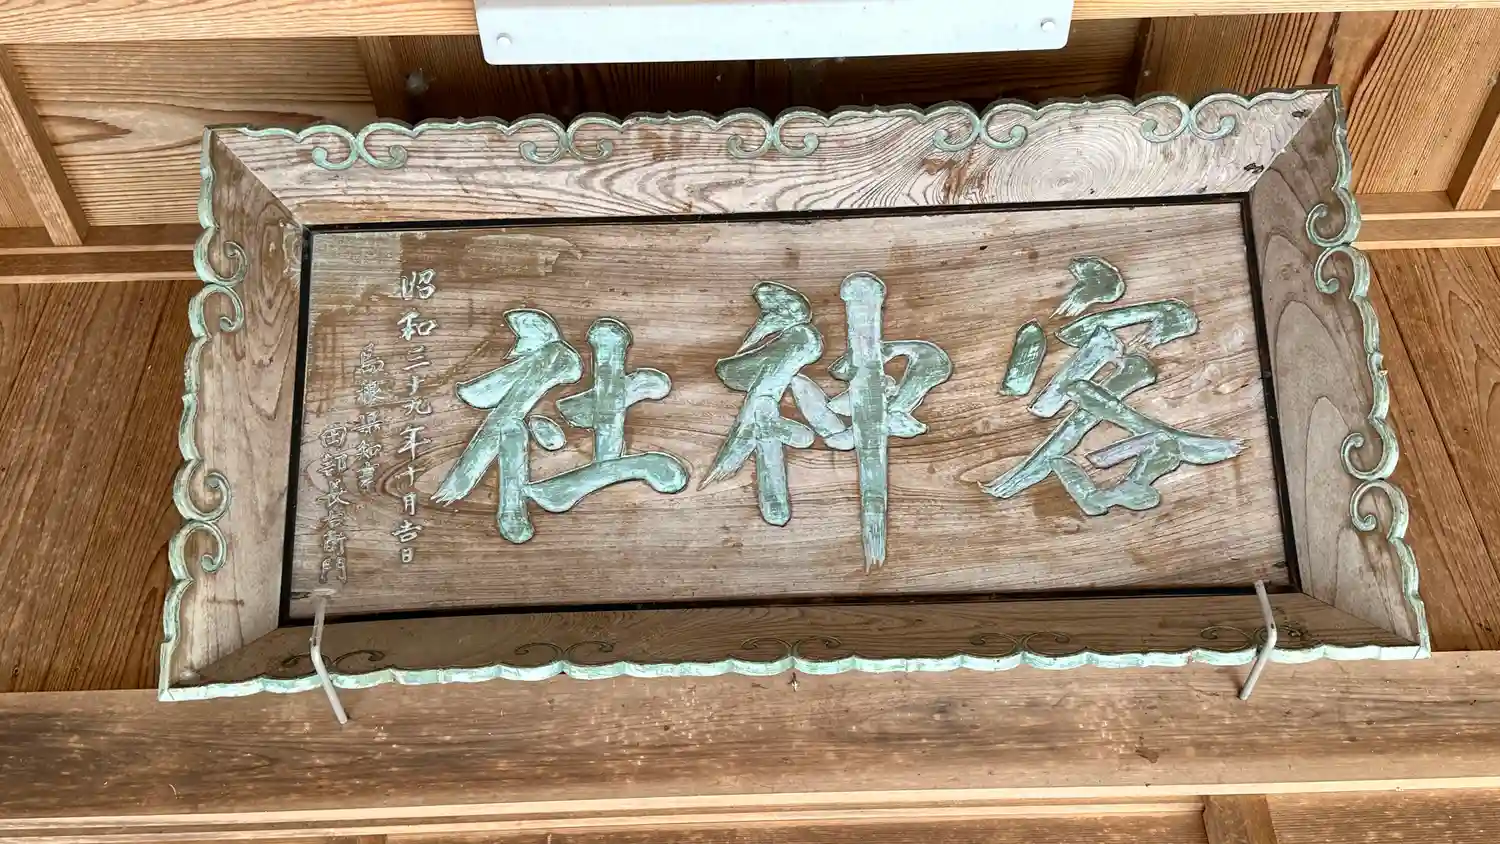 客神社
昭和三十九年十月吉日
島根県知事
田部長右衛門